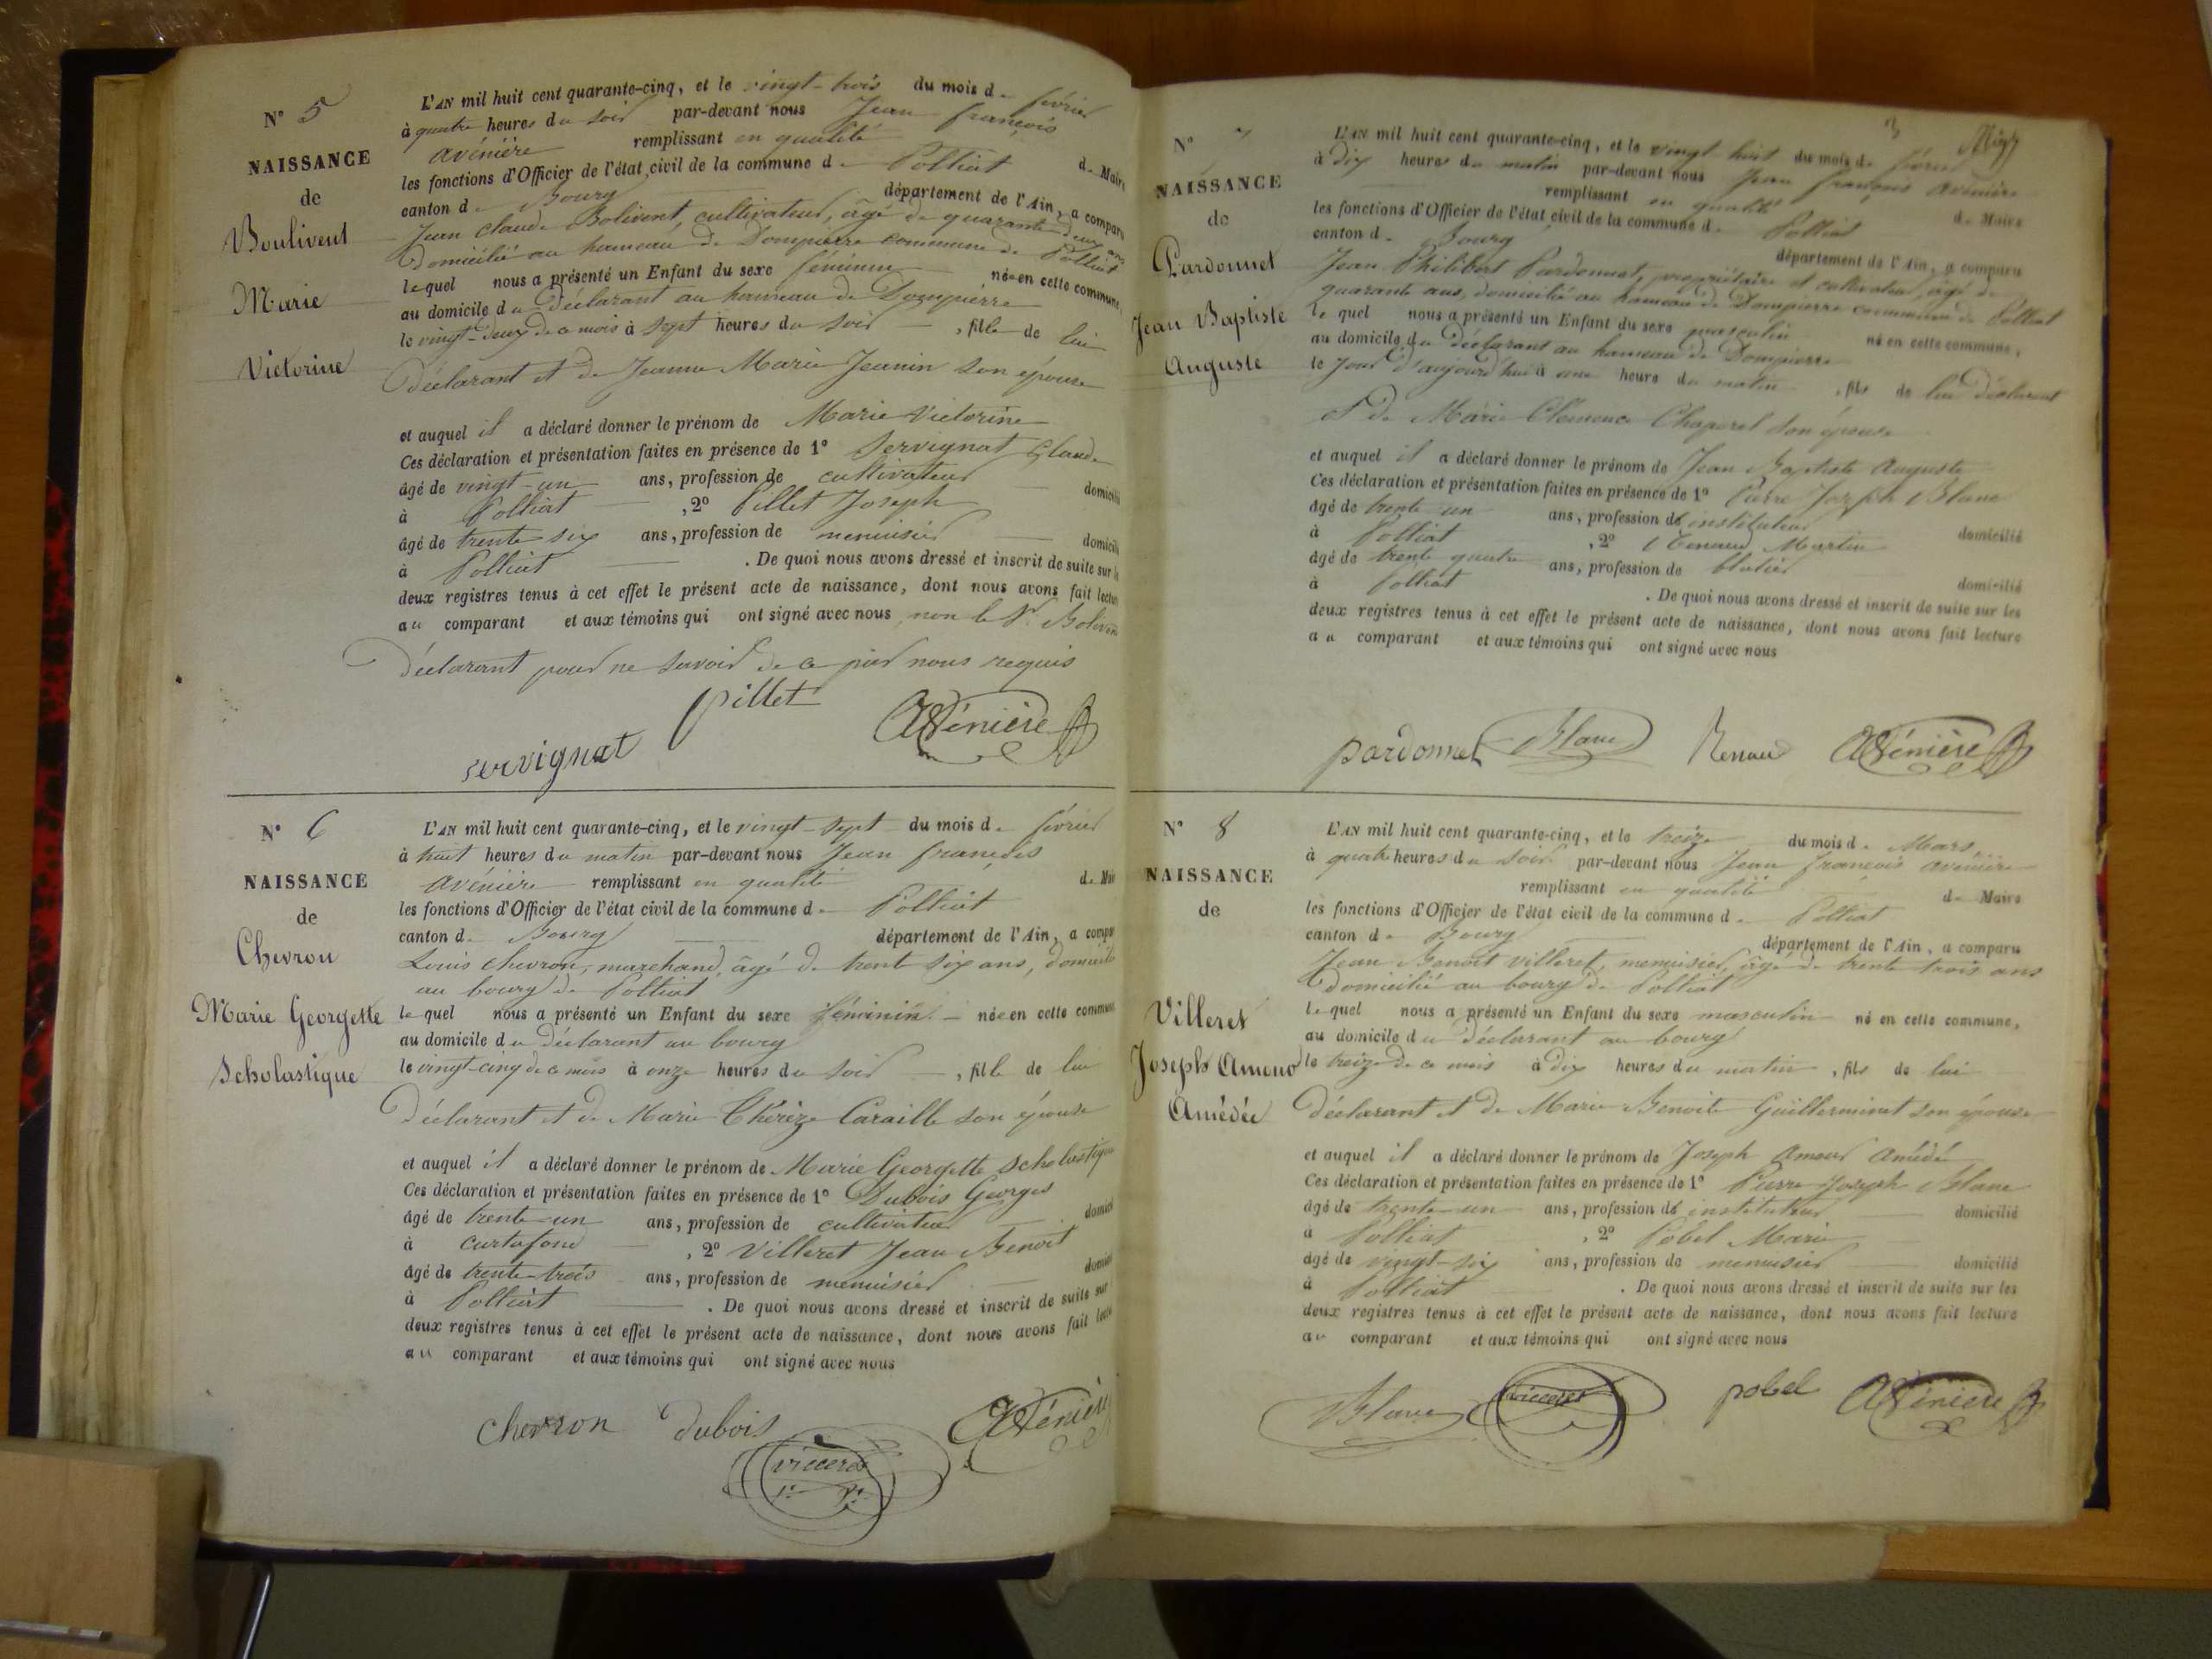 N° 5
NAISSANCE
de
Boulivent
Marie
Victorine
L'AN mil huit cent quarante-cinq, et le vingt-trois du mois de février
à quatre heures du soir par-devant nous Jean françois
avénière remplissant en qualité de Maire
les fonctions d'Officier de l'état civil de la commune de Polliat
canton de Bourg département de l'Ain, a comparu
Jean Claude Bolivent, cultivateur, âgé de quarante deux ans
domicilié au hameau de Dompierre commune de Polliat
lequel nous a présenté un Enfant du sexe féminin née en cette commune,
au domicile du déclarant au hameau de Dompierre
le vingt-deux de ce mois à sept heures du soir, fille de lui
Déclarant et de Jeanne Marie Jeanin son épouse
et auquel il a déclaré donner le prénom de Marie Victorine
Ces déclaration et présentation faites en présence de 1° Servignat Claude
âgé de vingt-un ans, profession de cultivateur domicilié
à Polliat, 2° Pillet Joseph
âgé de trente six ans, profession de menuisier domicilié
à Polliat. De quoi nous avons dressé et inscrit de suite sur les
deux registres tenus à cet effet le présent acte de naissance, dont nous avons fait lecture
au comparant et aux témoins qui ont signé avec nous non le Sr Bolivent
Déclarant pour ne savoir de ce par nous requis
pillet
servignat
Avénière
N° 6
NAISSANCE
de
Chevron
Marie Georgette
Scholastique
L'AN mil huit cent quarante-cinq, et le vingt-sept du mois de février
à huit heures du matin par-devant nous Jean françois
avénière remplissant en qualité de Maire
les fonctions d'Officier de l'état civil de la commune de Polliat
canton de Bourg département de l'Ain, a comparu
Louis Chevron, marchand, âgé de trente six ans, domicilié
au bourg de Polliat
lequel nous a présenté un Enfant du sexe féminin née en cette commune
au domicile du déclarant au bourg
le vingt-cinq de ce mois à onze heures du soir, fille de lui
Déclarant et de Marie Thérèze Caraille son épouse
et auquel il a déclaré donner le prénom de Marie Georgette Scholastique
Ces déclaration et présentation faites en présence de 1° Dubois Georges
âgé de trente-un ans, profession de cultivateur domicilié
à curtafond, 2° Villeret Jean Benoit
âgé de trente-trois ans, profession de menuisier domicilié
à Polliat. De quoi nous avons dressé et inscrit de suite sur
deux registres tenus à cet effet le présent acte de naissance, dont nous avons fait lecture
au comparant et aux témoins qui ont signé avec nous
chevron dubois Avénière
villeret
3
N° 7
NAISSANCE
de
Pardonnet
Jean Baptiste
Auguste
L'AN mil huit cent quarante-cinq, et le vingt huit du mois de février
à dix heures du matin par-devant nous Jean françois avénière
remplissant en qualité de Maire
les fonctions d'Officier de l'état civil de la commune de Polliat
canton de Bourg département de l'Ain, a comparu
Jean Philibert Pardonnet, propriétaire et cultivateur, âgé de
quarante ans, domicilié au hameau de Dompierre commune de Polliat
lequel nous a présenté un Enfant du sexe masculin né en cette commune,
au domicile du déclarant au hameau de Dompierre
le jour d'aujourd'hui à une heure du matin, fils de lui déclarant
et de Marie Clémence Chaperel son épouse
et auquel il a déclaré donner le prénom de Jean Baptiste Auguste
Ces déclaration et présentation faites en présence de 1° Pierre Joseph Blanc
âgé de trente un ans, profession d'instituteur domicilié
à Polliat, 2° Renaud Martin
âgé de trente quatre ans, profession de domicilié
à Polliat. De quoi nous avons dressé et inscrit de suite sur les
deux registres tenus à cet effet le présent acte de naissance, dont nous avons fait lecture
au comparant et aux témoins qui ont signé avec nous
pardonnet Blanc Renaud Avénière
N° 8
NAISSANCE
de
Villeret
Joseph Amour
Amédée
L'AN mil huit cent quarante-cinq, et le treize du mois de Mars
à quatre heures du soir par-devant nous Jean françois avénière
remplissant en qualité de Maire
les fonctions d'Officier de l'état civil de la commune de Polliat
canton de Bourg département de l'Ain, a comparu
Jean Benoit Villeret, menuisier, âgé de trente trois ans
domicilié au bourg de Polliat
lequel nous a présenté un Enfant du sexe masculin né en cette commune,
au domicile du déclarant au bourg
le treize de ce mois à dix heures du matin, fils de lui
déclarant et de Marie Benoite Guilleminet son épouse
et auquel il a déclaré donner le prénom de Joseph Amour Amédée
Ces déclaration et présentation faites en présence de 1° Pierre Joseph Blanc
âgé de trente-un ans, profession d'instituteur domicilié
à Polliat, 2° Pobel Marie
âgé de vingt-six ans, profession de menuisier domicilié
à Polliat. De quoi nous avons dressé et inscrit de suite sur les
deux registres tenus à cet effet le présent acte de naissance, dont nous avons fait lecture
au comparant et aux témoins qui ont signé avec nous
Blanc villeret pobel Avénière